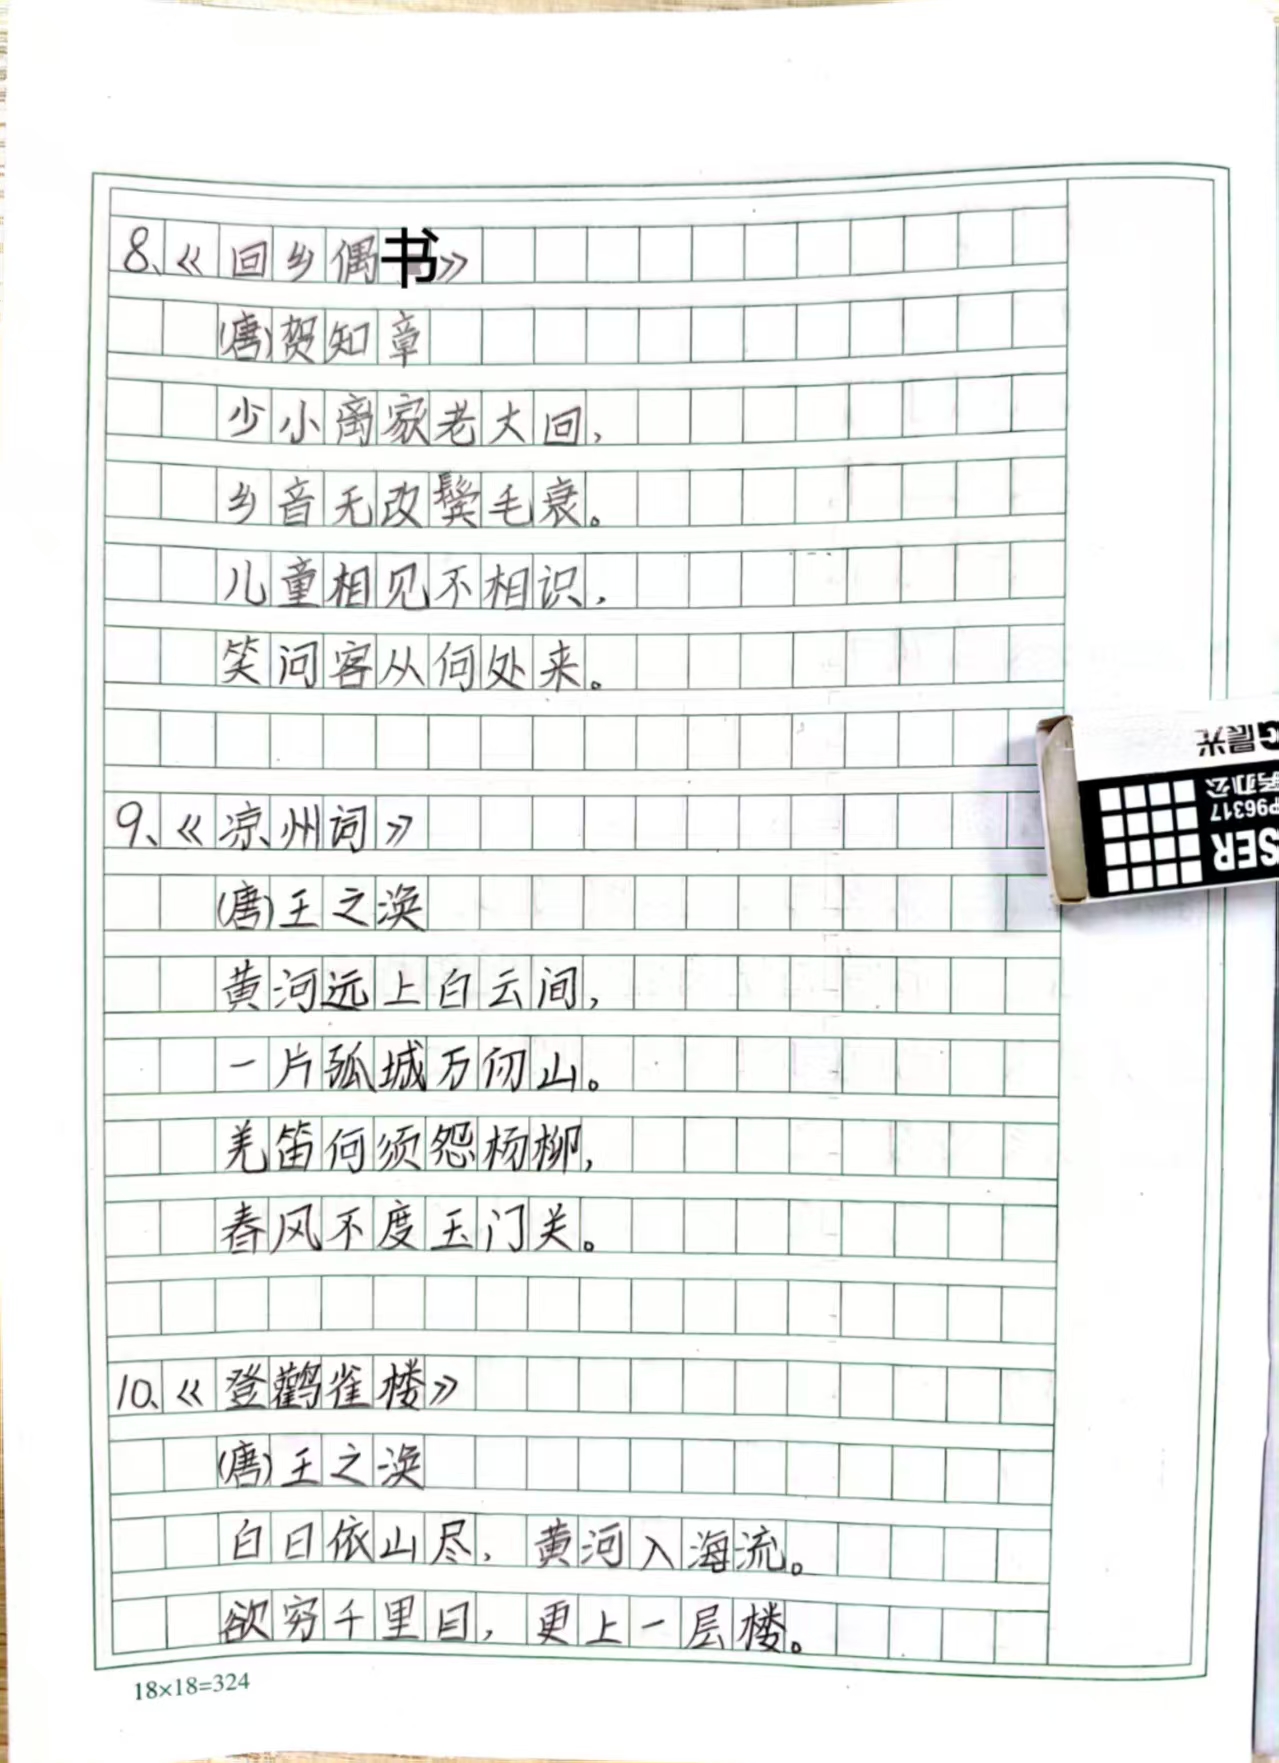 8、《回乡偶书》
(唐)贺知章
少小离家老大回，
乡音无改鬓毛衰。
儿童相见不相识，
笑问客从何处来。
9、《凉州词》
(唐)王之涣
黄河远上白云间，
一片孤城万仞山。
羌笛何须怨杨柳，
春风不度玉门关。
10、《登鹳雀楼》
(唐)王之涣
白日依山尽，黄河入海流。
欲穷千里目，更上一层楼。
18×18=324
G晨光
办公
P96317
SER